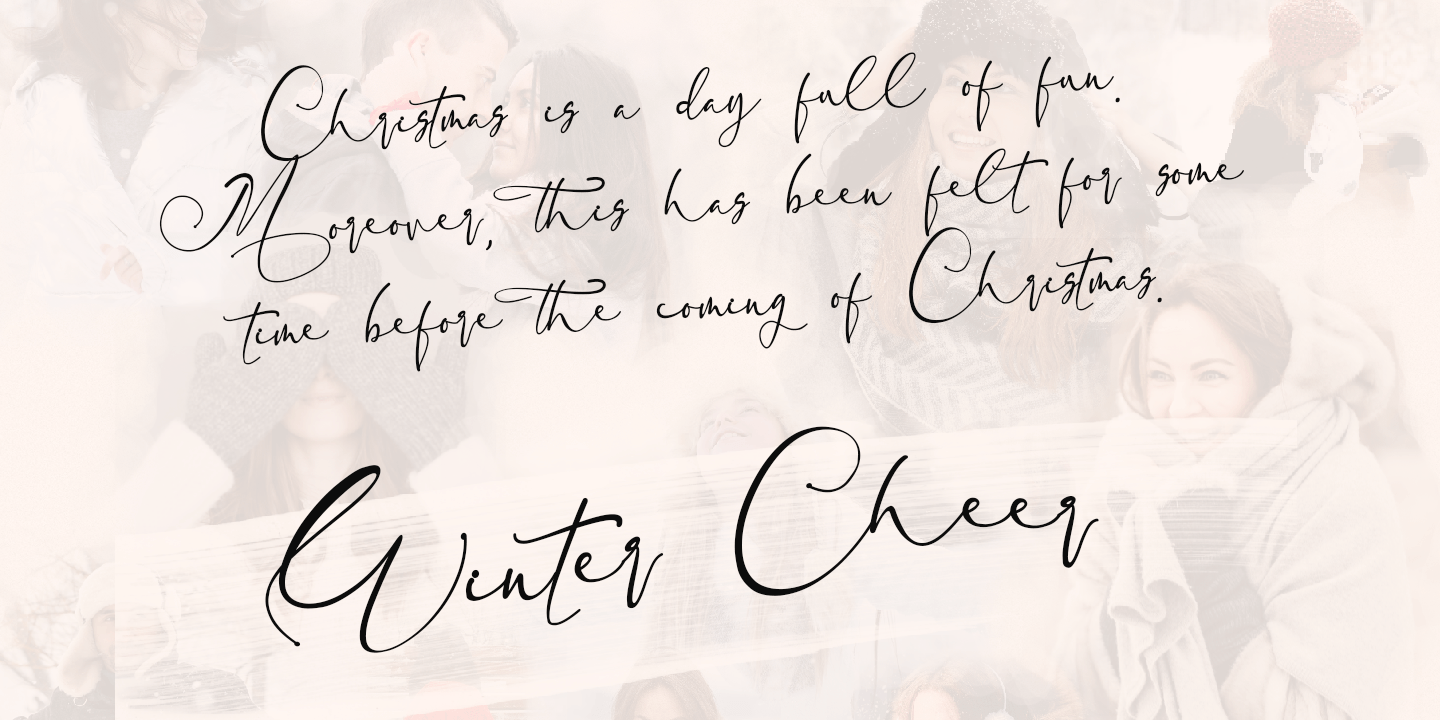 Christmas is a day full of fun.
Moreover, this has been felt for some
time before the coming of Christmas.
Winter Cheer